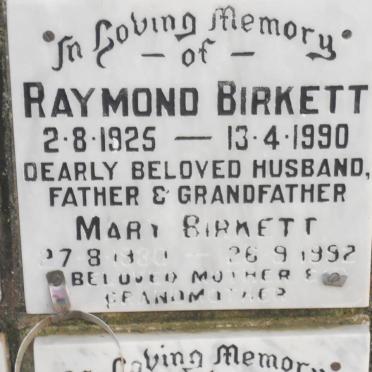 In Loving Memory
- of -
RAYMOND BIRKETT
2·8·1925 — 13·4·1990
DEARLY BELOVED HUSBAND,
FATHER & GRANDFATHER
MARY BIRKETT
27·8·19 — 26·9·1992
BELOVED MOTHER &
GRANDMOTHER
Loving Memory